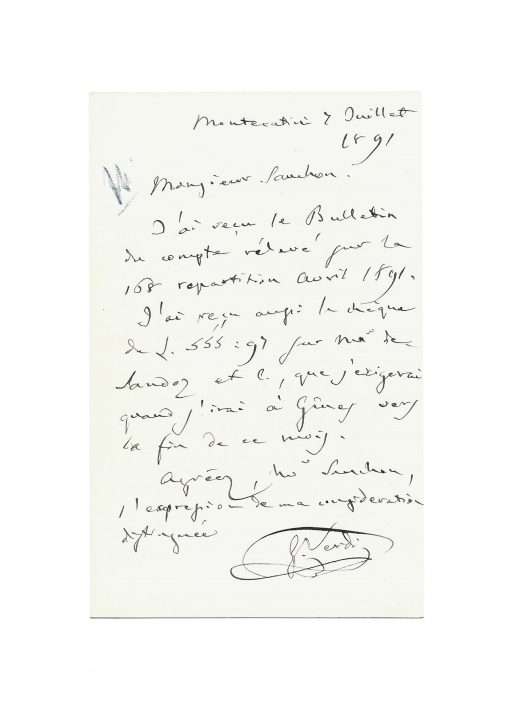 Montecatini 7 Juillet
1891
Monsieur Souchon.
J'ai reçu le Bulletin
du compte rélevé sur la
168 repartition avril 1891.
J'ai reçu aussi le chèque
de L. 555:97 sur Mrs de
Sandoz et C., que j'exigerai
quand j'irai à Gênes vers
la fin de ce mois.
Agréez, Mr Souchon,
l'expression de ma consideration
distinguée
G. Verdi